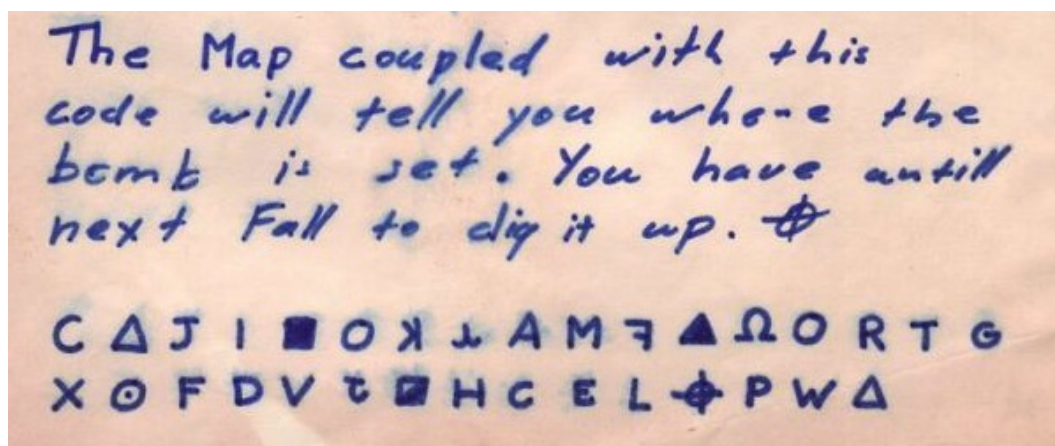 The Map coupled with this
code will tell you where the
bomb is set. You have untill
next Fall to dig it up. ⌖
C Δ J I ■ O ꓘ ʇ A M ꟻ ▲ Ω O R T G
X ⊙ F D V Ʇ ◪ H C E L ⌖ P W Δ